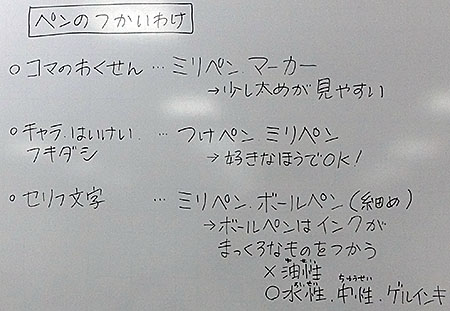 ペンのつかいわけ
○コマのわくせん … ミリペン.マーカー
→少し太めが見やすい
○キャラ.はいけい. … つけペン ミリペン
フキダシ →好きなほうでOK!
○セリフ文字 … ミリペン.ボールペン(細め)
→ボールペンはインクが
まっくろなものをつかう
×油性
○水性.中性.ゲルインキ
ちゅうせい